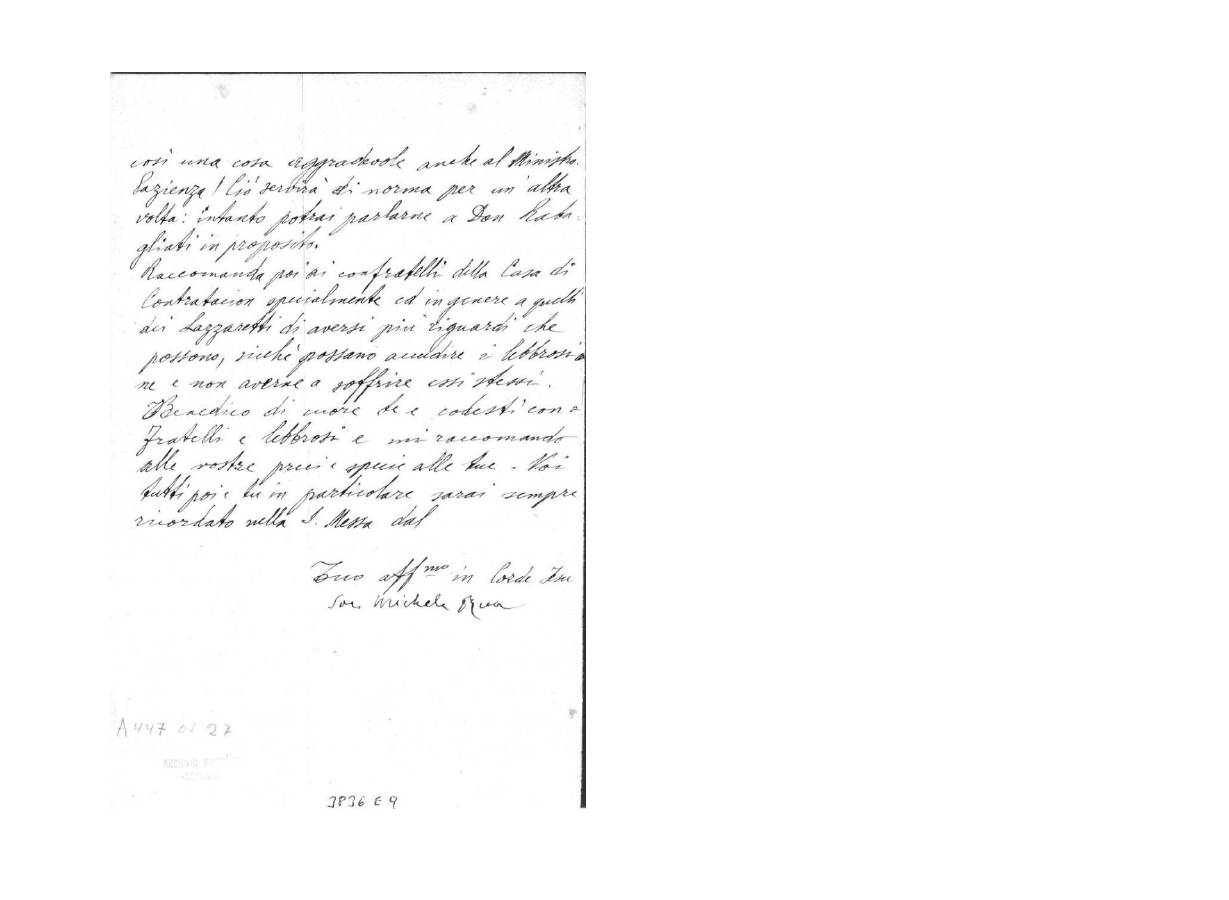 così una cosa aggradevole anche al Ministro.
Pazienza! Ciò servirà di norma per un'altra
volta: intanto potrai parlarne a Don Raba-
gliati in proposito.
Raccomanda poi ai confratelli della Casa di
Contratacion specialmente ed in genere a quelli
dei Lazzaretti di aversi più riguardi che
possono, sicché possano accudire i lebbrosi
ne e non averne a soffrire essi stessi.
Benedico di cuore te e codesti con=
fratelli e lebbrosi e mi raccomando
alle vostre preci e specie alle tue. Voi
tutti poi e tu in particolare sarai sempre
ricordato nella S. Messa dal
Tuo aff.mo in Corde Jesu
Sac. Michele Rua
A447 01 27
ARCHIVIO
3836 E 9